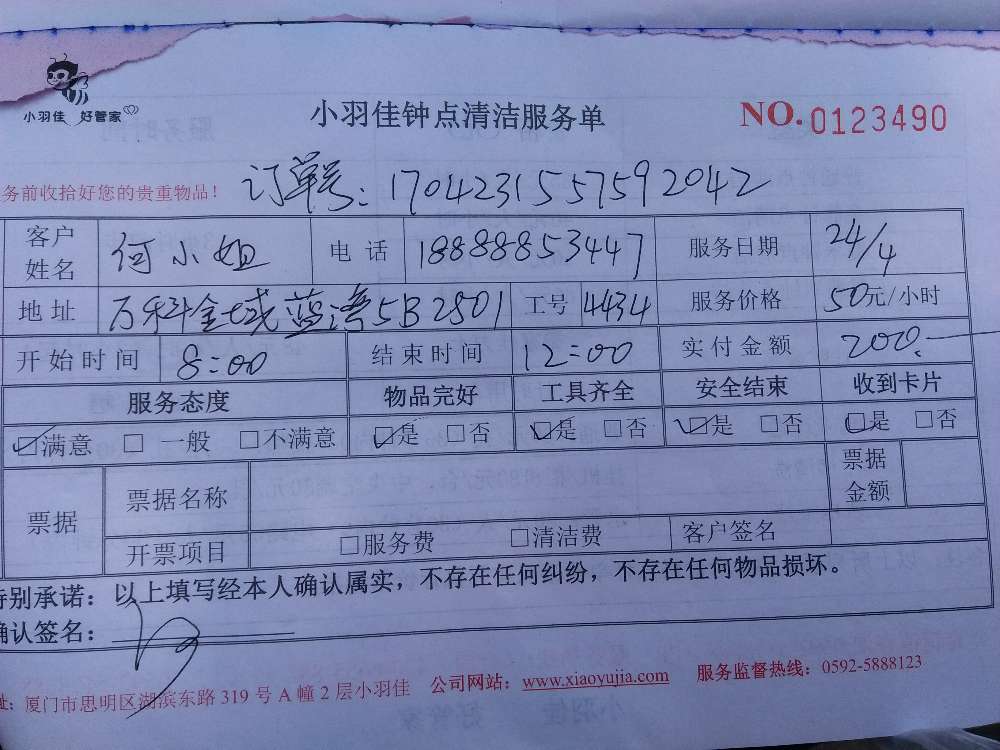 小羽佳 好管家
小羽佳钟点清洁服务单
NO. 0123490
务前收拾好您的贵重物品！
订单号：1704231557592042
客户姓名 何小姐 电话 18888853447 服务日期 24/4
地址 万科金域蓝湾5B2501 工号 4434 服务价格 50元/小时
开始时间 8:00 结束时间 12:00 实付金额 200.—
服务态度 物品完好 工具齐全 安全结束 收到卡片
☑满意 □一般 □不满意 ☑是 □否 ☑是 □否 ☑是 □否 ☑是 □否
票据 票据名称 票据金额
开票项目 □服务费 □清洁费 客户签名
特别承诺：以上填写经本人确认属实，不存在任何纠纷，不存在任何物品损坏。
确认签名：
址：厦门市思明区湖滨东路319号A幢2层小羽佳 公司网站：www.xiaoyujia.com 服务监督热线：0592-5888123